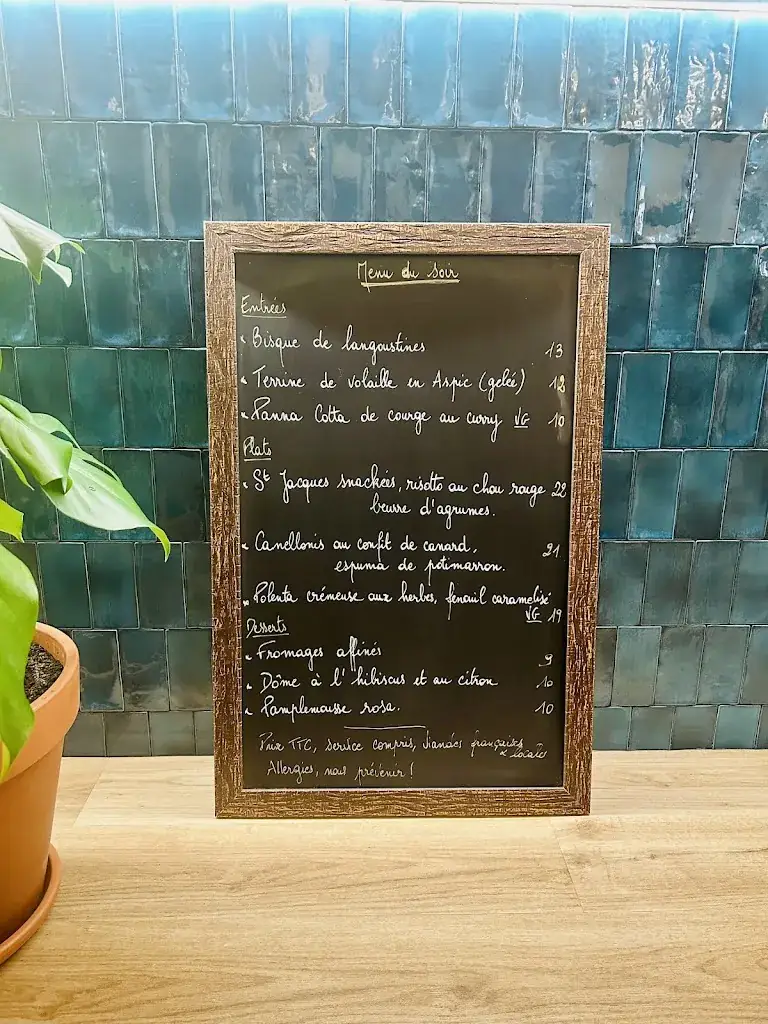 Menu du soir
Entrées
- Bisque de langoustines 13
- Terrine de volaille en Aspic (gelée) 12
- Panna Cotta de courge au curry VG 10
Plats
- St Jacques snackées, risotto au chou rouge 22
beurre d'agrumes.
- Canellonis au confit de canard, 21
espuma de potimarron.
- Polenta crémeuse aux herbes, fenouil caramelisé
VG 19
Desserts
- Fromages affinés 9
- Dôme à l'hibiscus et au citron 10
- Pamplemousse rosa. 10
Prix TTC, service compris, viandes françaises
& locales
Allergies, nous prévenir !